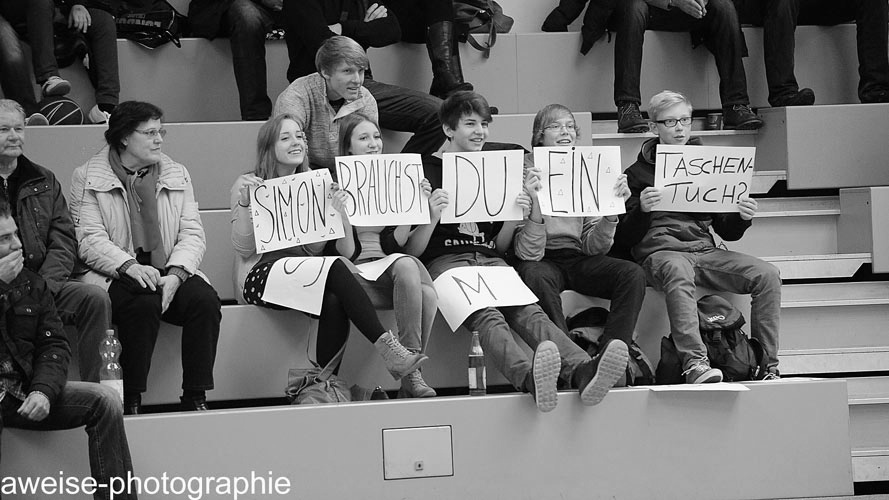 SIMON
BRAUCHST
DU
EIN
TASCHEN-
TUCH?
M
aweise-photographie